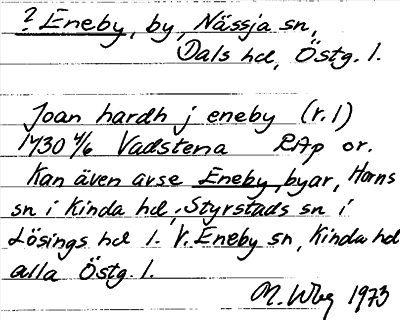 ? Eneby, by, Nässja sn,
Dals hd, Östg. l.
Joan hardh j eneby (r. 1)
1430 4/6 Vadstena RAp or.
Kan även avse Eneby, byar, Horns
sn i Kinda hd, Styrstads sn i
Lösings hd l. V. Eneby sn, Kinda hd
alla Östg. l.
M. Wbg 1973